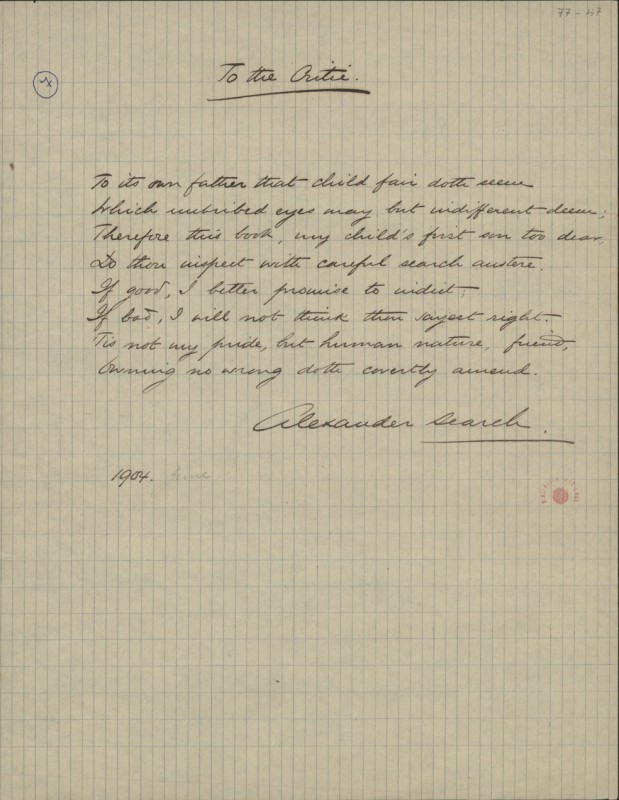 77-47
To the Critic.
To its own father that child fair doth seem
Which unbribed eyes may but indifferent deem;
Therefore this book, my child's first son too dear,
Do thou inspect with careful search austere.
If good, I better promise to indict;
If bad, I will not think thou sayest right.
'Tis not my pride, but human nature, friend,
Owning no wrong doth covertly amend.
Alexander Search.
1904. June